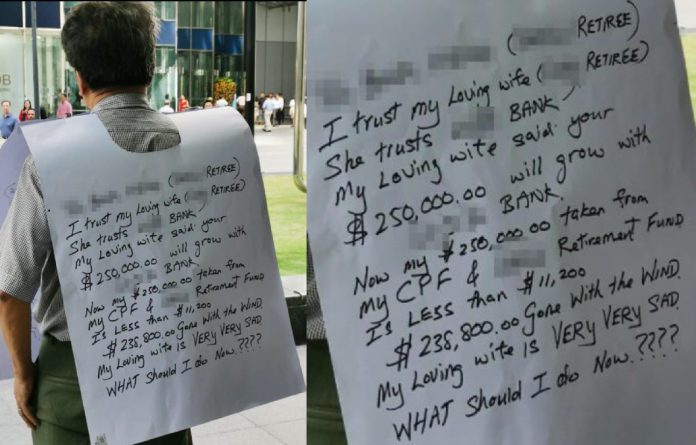 OB
( RETIREE)
I trust my Loving wife ( RETIREE)
She trusts BANK)
My Loving wife said your
$250,000.00 will grow with
BANK.
Now my $250,000.00 taken from
My CPF & Retirement FUND
Is LESS than $11,200
$238,800.00 Gone With the WIND.
My Loving wife IS VERY VERY SAD.
WHAT Should I do Now.????
( RETIREE)
I trust my Loving wife ( RETIREE)
She trusts BANK)
My Loving wife said your
$250,000.00 will grow with
BANK.
Now my $250,000.00 taken from
My CPF & Retirement FUND
Is LESS than $11,200
$238,800.00 Gone With the WIND.
My Loving wife IS VERY VERY SAD.
WHAT Should I do Now.????